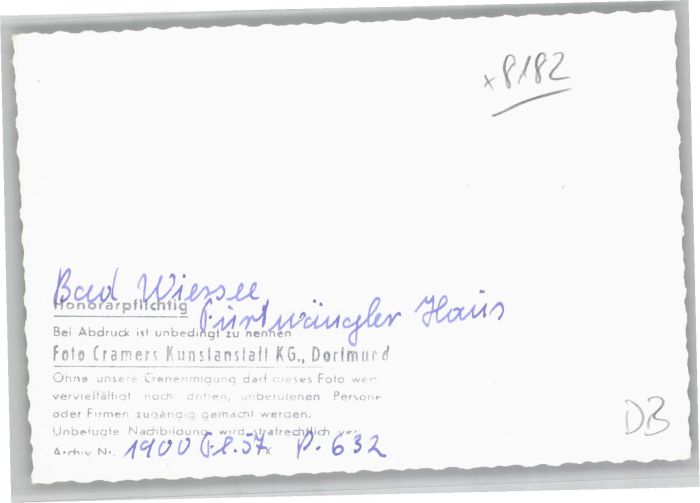 x 8182
Bad Wiessee
Honorarpflichtig
Furtwängler Haus
Bei Abdruck ist unbedingt zu nennen
Foto Cramers Kunstanstalt KG., Dortmund
Ohne unsere Genehmigung darf dieses Foto wer-
vervielfältigt noch dritten, unberufenen Persone
oder Firmen zugängig gemacht werden.
Unbefugte Nachbildung wird strafrechtlich ver-
Archiv Nr. 1900 57 P. 632
DB